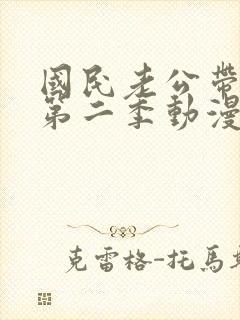 國民老公帶
第二季動漫
克雷格-托馬斯